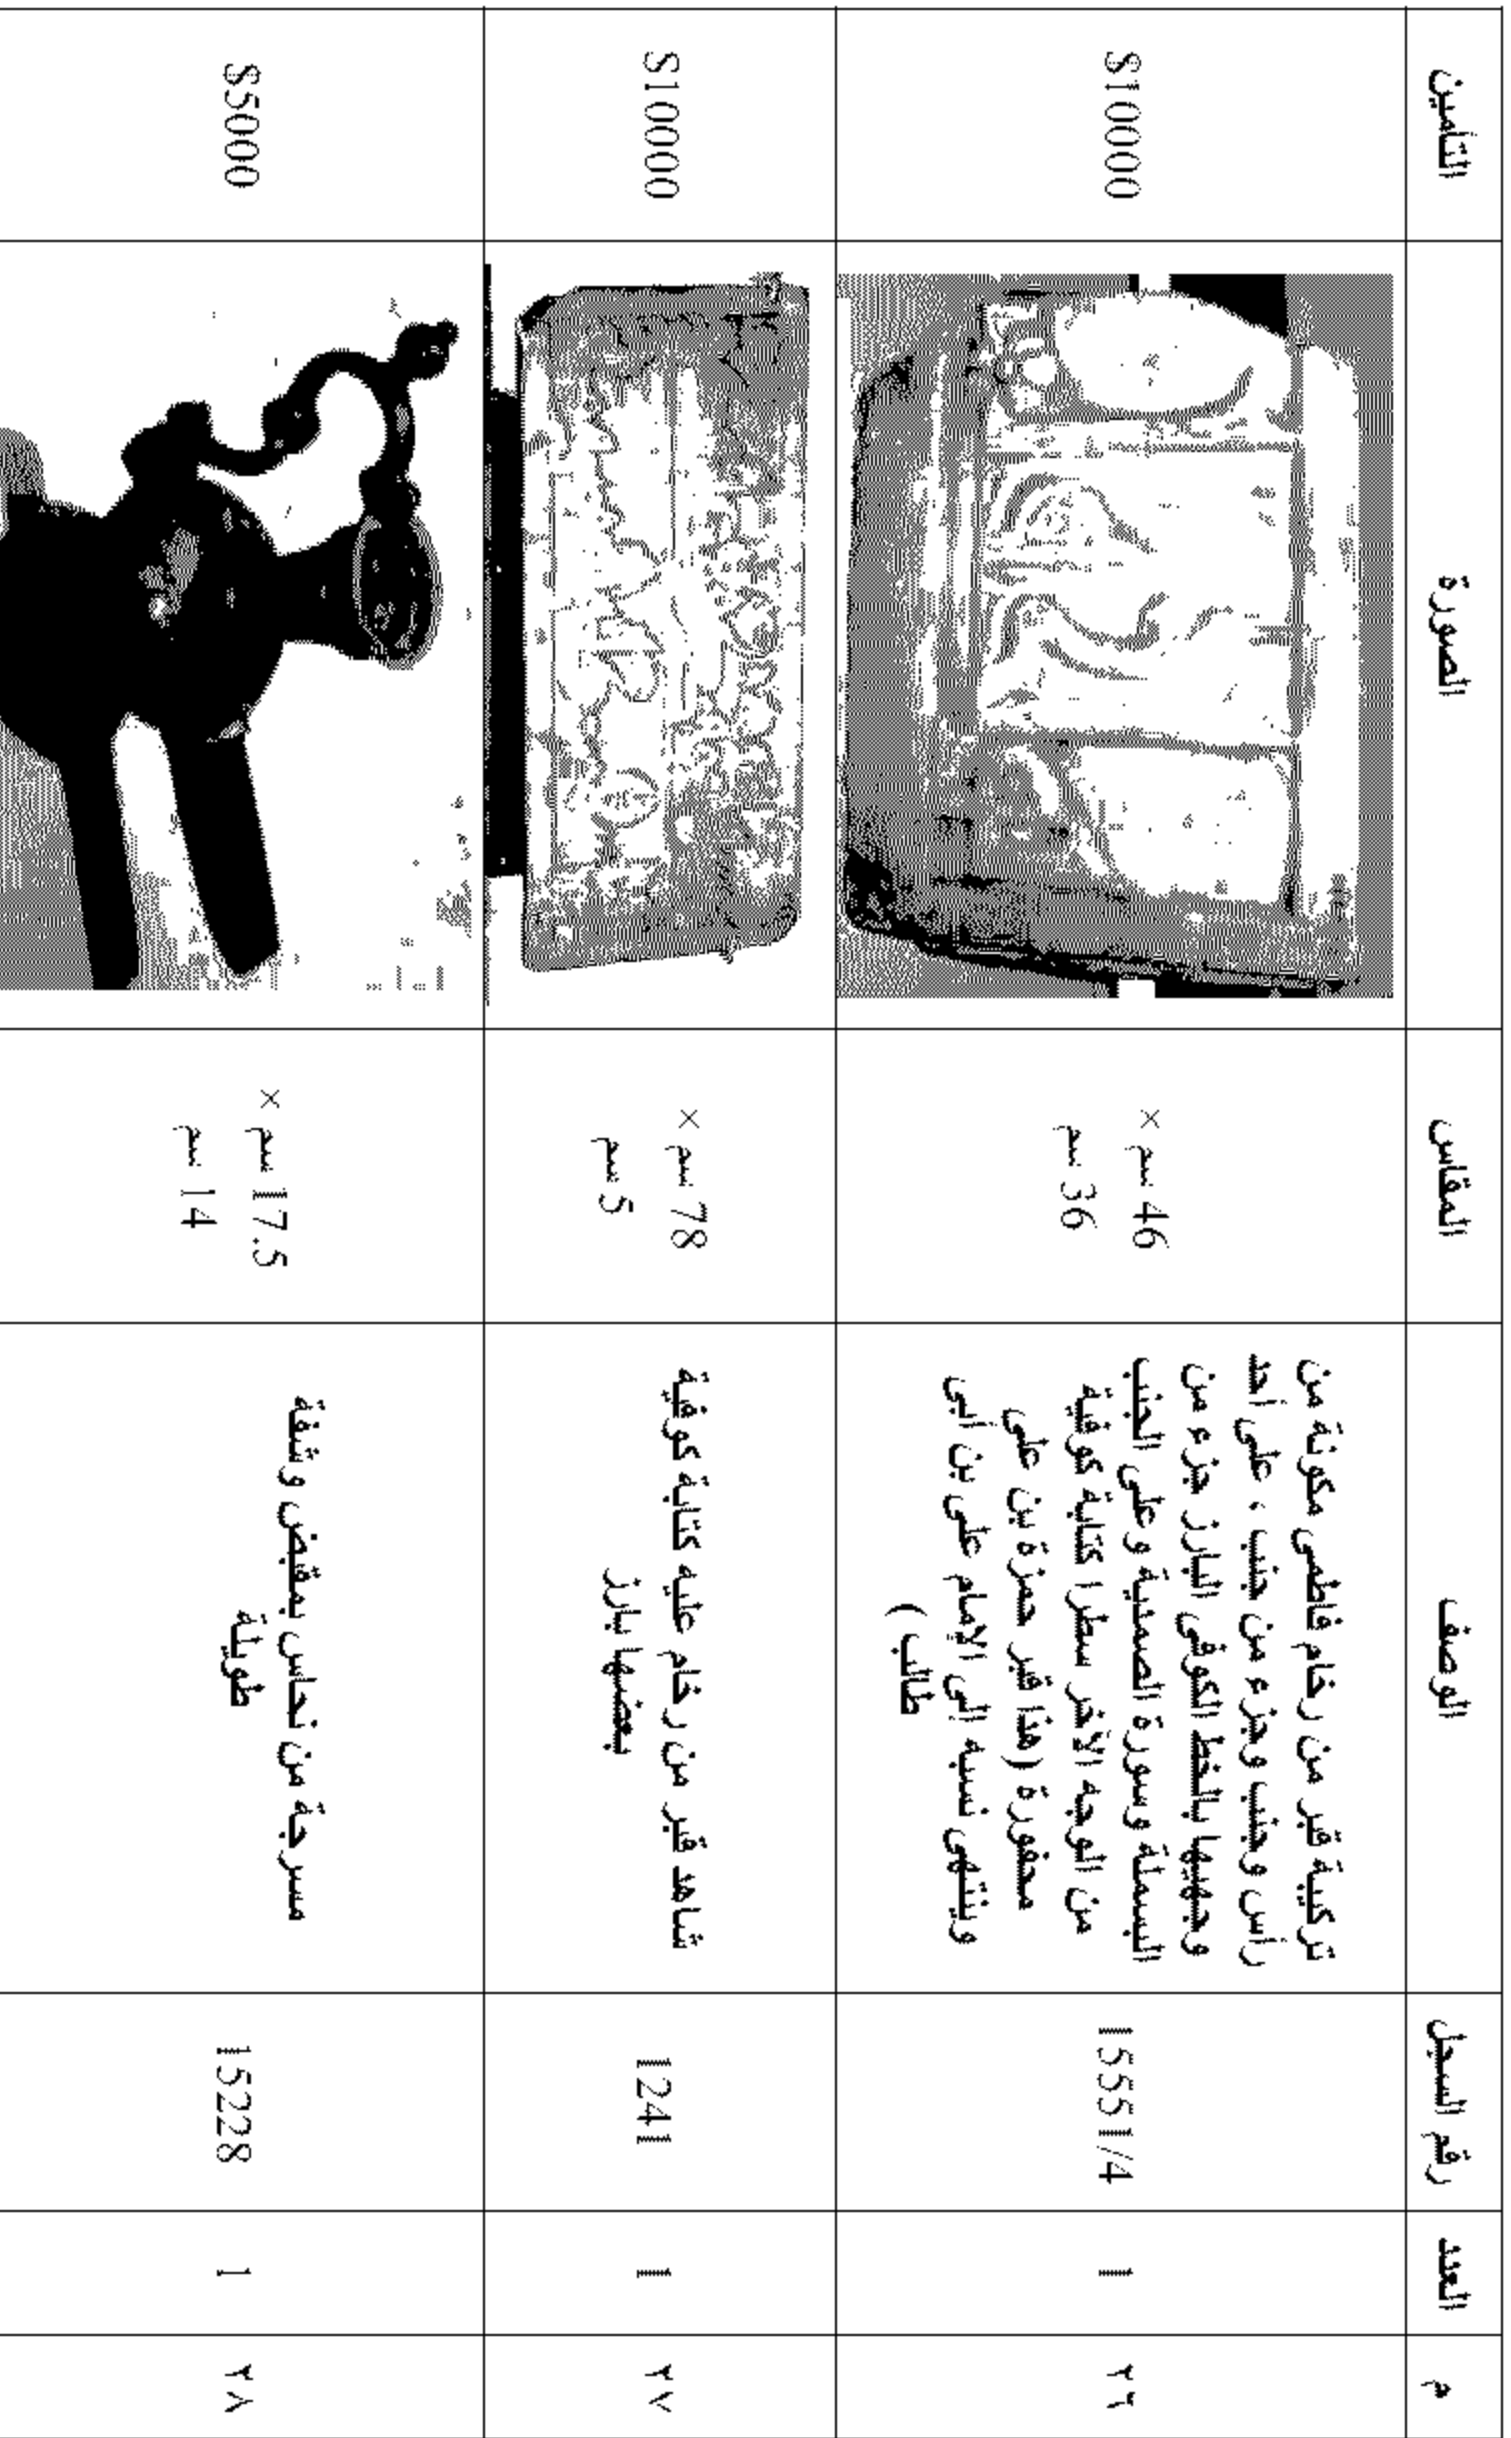 م
العدد
رقم السجل
الوصف
المقاس
الصورة
التأمين
٢٦
1
15551/4
تركيبة قبر من رخام فاطمى مكونة من
رأس وجنب وجزء من جنب ، على أحد
وجهيها بالخط الكوفى البارز جزء من
البسملة وسورة الصمدية وعلى الجنب
من الوجه الآخر سطرا كتابة كوفية
محفورة (هذا قبر حمزة بن على
وينتهى نسبه الى الإمام على بن أبى
طالب )
46 سم ×
36 سم
$10000
٢٧
1
1241
شاهد قبر من رخام عليه كتابة كوفية
بعضها بارز
78 سم ×
5 سم
$10000
٢٨
1
15228
مسرجة من نحاس بمقبض وشفة
طويلة
17.5 سم ×
14 سم
$5000